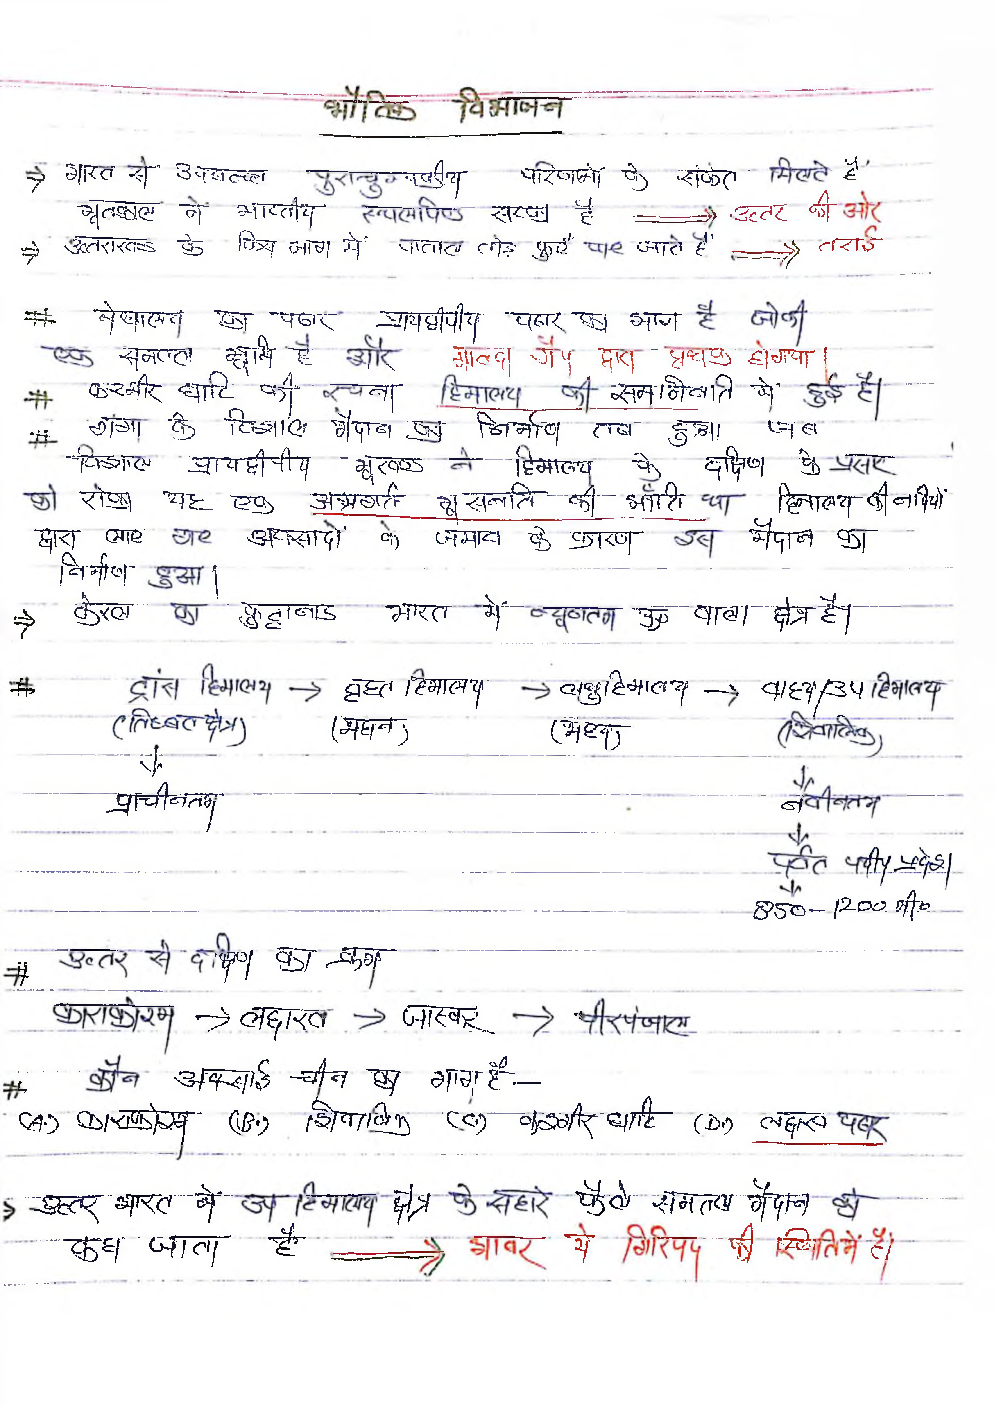 भौतिक विभाजन
⇒ भारत से उपलब्ध पुराचुम्बकीय परिणामों के संकेत मिलते हैं
भूतकाल में भारतीय स्थलपिण्ड सरका है ⟹ उत्तर की ओर
⇒ उत्तराखण्ड के जिस भाग में पाताल तोड़ कुएँ पाए जाते हैं ⟹ तराई
# मेघालय का पठार प्रायद्वीपीय पठार का भाग है जोकी
एक समतल भूमि है और मालदा गैप द्वारा पृथक होगया।
# कश्मीर घाटि की रचना हिमालय की समाभिनति में हुई है।
# गंगा के विशाल मैदान का निर्माण तब हुआ जब
विशाल प्रायद्वीपीय भूखण्ड ने हिमालय के दक्षिण के प्रसार
को रोका यह एक अग्रगर्त भूसनति की भाँति था हिमालय की नदियों
द्वारा लाए गए अवसादों के जमाव के कारण इस मैदान का
निर्माण हुआ।
⇒ केरल का कुट्टानाड भारत में न्यूनतम ऊँ वाला क्षेत्र है।
# ट्रांस हिमालय → वृहत हिमालय → लघु हिमालय → बाह्य/उप हिमालय
(तिब्बत क्षेत्र) (महान) (मध्य) (शिवालिक)
↓
प्राचीनतम
↓
नवीनतम
↓
पर्वत पदीय प्रदेश
↓
850-1200 मी०
# उत्तर से दक्षिण का क्रम
काराकोरम → लद्दाख → जास्कर → पीरपंजाल
# कौन अक्साई चीन का भाग है —
(A.) काराकोरम (B.) शिवालिक (C.) कश्मीर घाटि (D.) लद्दाख पठार
⇒ उत्तर भारत में उप हिमालय क्षेत्र के सहारे फैले समतल मैदान को
कहा जाता है ⟹ भावर ये गिरिपद की स्थिति में है।